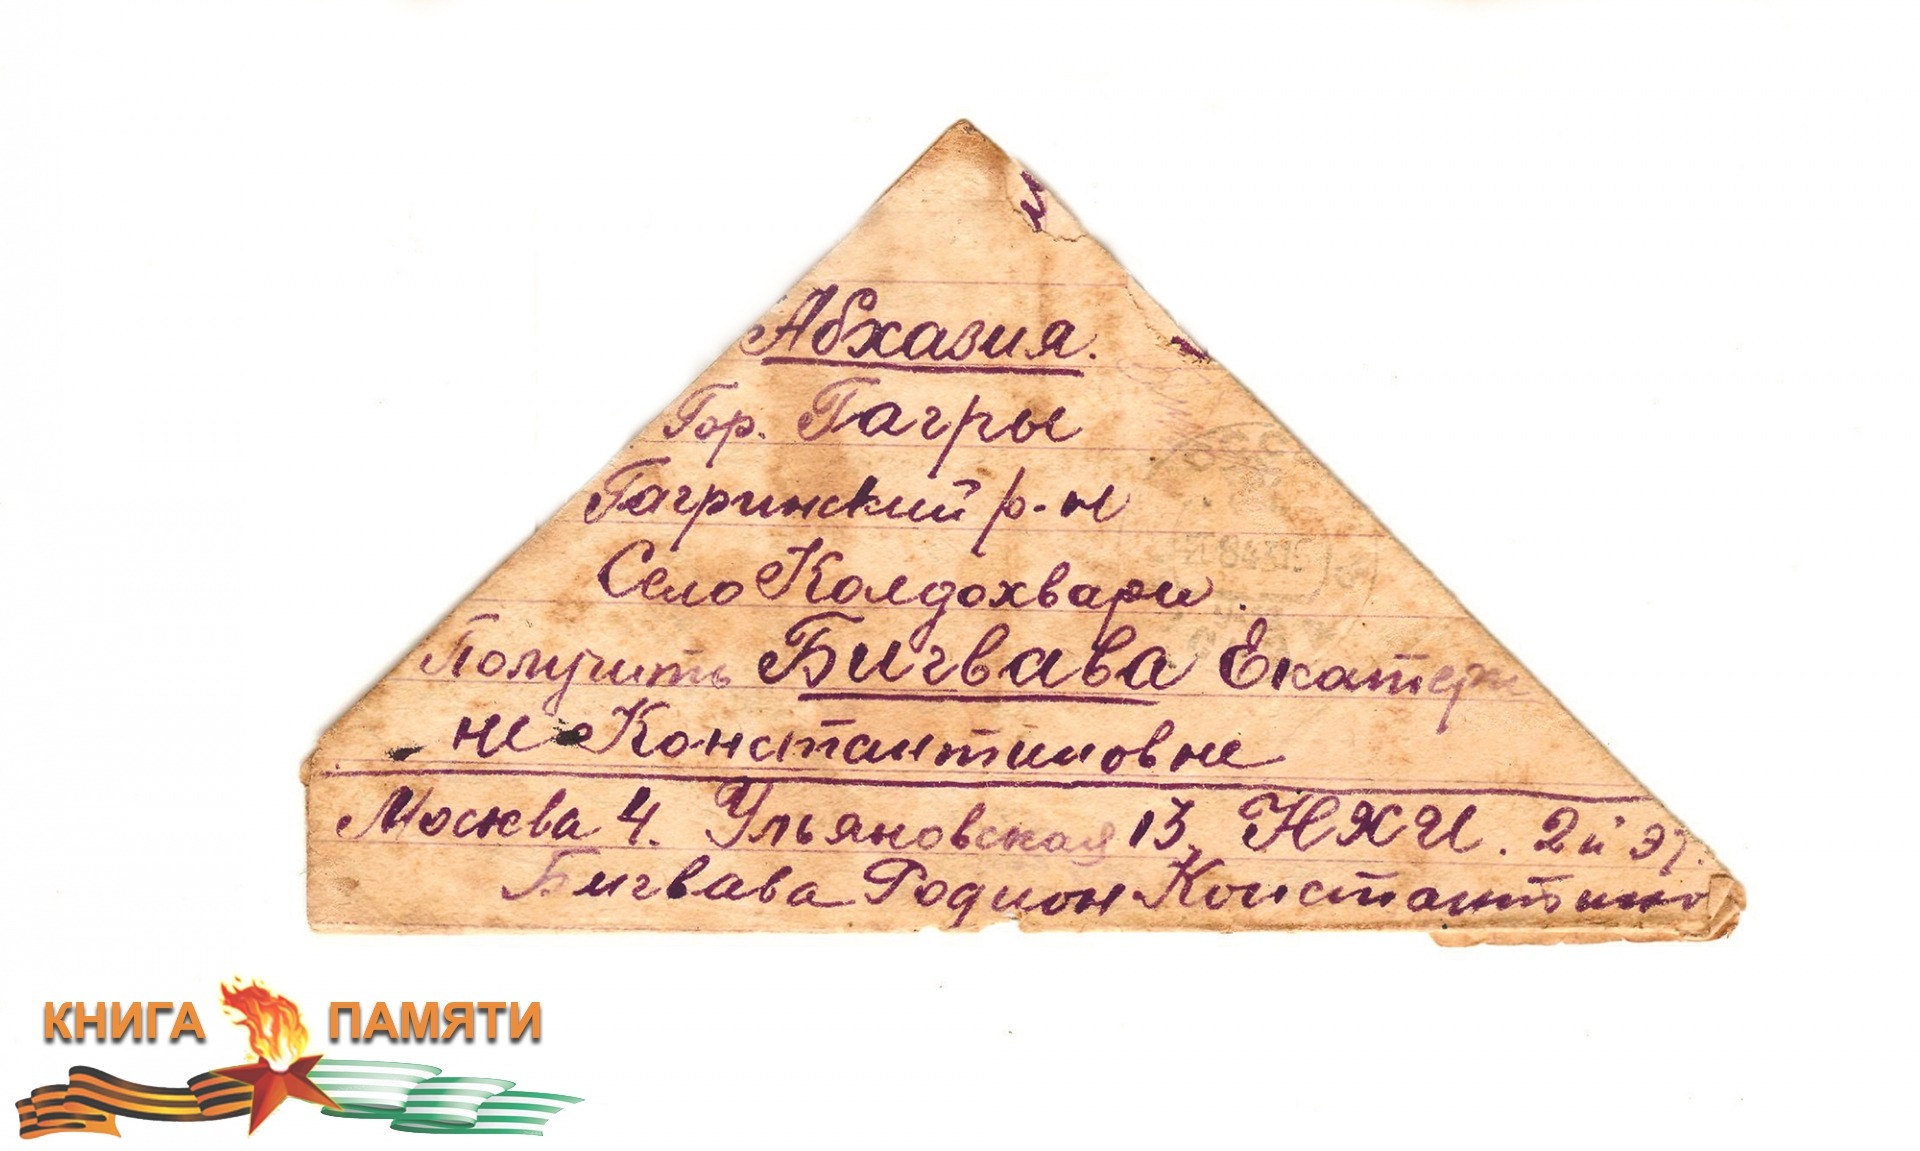 Абхазия.
Гор. Гагры
Гагринский р-н
Село Колдохвари.
Получить Бигвава Екатери
не Константиновне
Москва 4. Ульяновская 13. НХИ. 2й эт.
Бигвава Родион Константино
КНИГА ПАМЯТИ